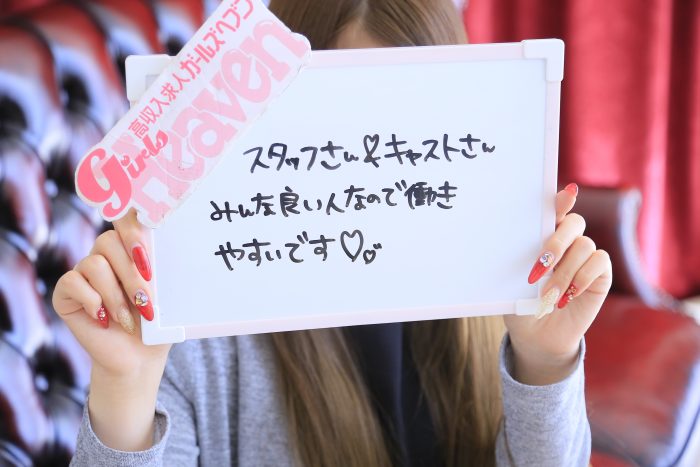 高収入求人ガールズヘブン
Girls heaven
スタッフさん♡キャストさん
みんな良い人なので働き
やすいです♡♡